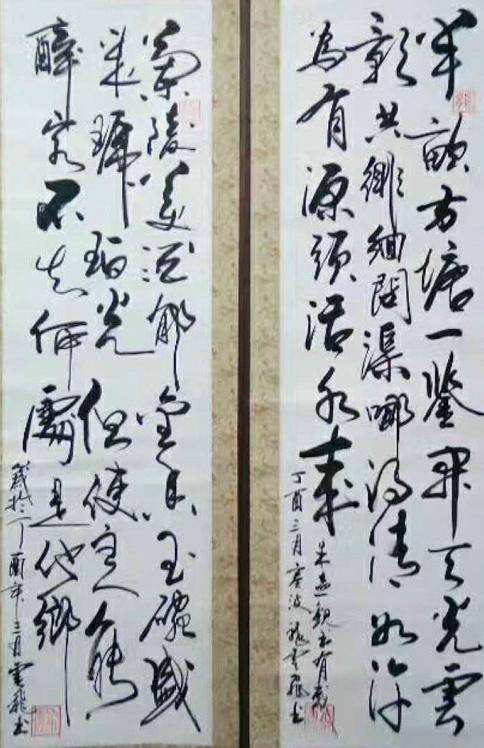 半畝方塘一鑒開天光雲
影共徘徊問渠哪得清如許
為有源頭活水來
朱熹觀書有感
丁酉三月寧波張雲飛書
蘭陵美酒郁金香玉碗盛
來琥珀光但使主人能
醉客不知何處是他鄉
歲於丁酉年三月雲飛書